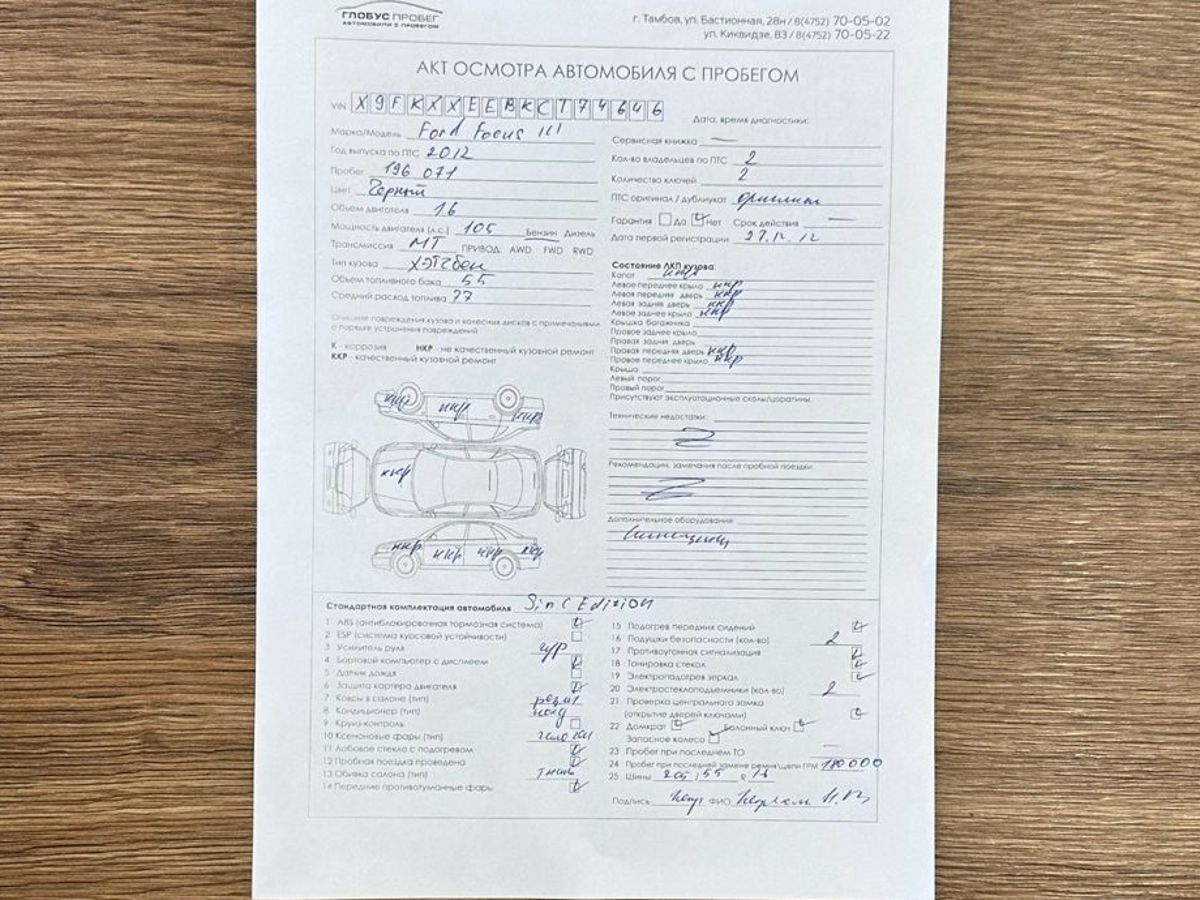 ГЛОБУС ПРОБЕГ
АВТОМОБИЛИ С ПРОБЕГОМ
г. Тамбов, ул. Бастионная, 28н / 8(4752) 70-05-02
ул. Киквидзе, 83 / 8(4752) 70-05-22
АКТ ОСМОТРА АВТОМОБИЛЯ С ПРОБЕГОМ
VIN X9FKXXEEBKCT74646
Дата, время диагностики:
Марка/Модель Ford Focus III
Год выпуска по ПТС 2012
Пробег 196 071
Цвет Черный
Объем двигателя 1.6
Мощность двигателя (л.с.) 105 Бензин Дизель
Трансмиссия МТ ПРИВОД: AWD FWD RWD
Тип кузова хэтчбек
Объем топливного бака 55
Средний расход топлива 7?
Опишите повреждения кузова и колесных дисков с примечаниями
о порядке устранения повреждений
К - коррозия НКР - не качественный кузовной ремонт
ККР - качественный кузовной ремонт
Сервисная книжка —
Кол-во владельцев по ПТС 2
Количество ключей 2
ПТС оригинал / дубликат оригинал
Гарантия Да Нет Срок действия —
Дата первой регистрации 27.12.12
Состояние ЛКП кузова:
Капот нкр
Левое переднее крыло нкр
Левая передняя дверь нкр
Левая задняя дверь нкр
Левое заднее крыло нкр
Крышка багажника
Правое заднее крыло
Правая задняя дверь
Правая передняя дверь нкр
Правое переднее крыло нкр
Крыша
Левый порог
Правый порог
Присутствуют эксплуатационные сколы/царапины.
Технические недостатки:
Рекомендации, замечания после пробной поездки:
Дополнительное оборудование
нкр
нкр
нкр
нкр
нкр
нкр
нкр
нкр
Стандартная комплектация автомобиля Sinc Edition
1 ABS (антиблокировочная тормозная система)
2 ESP (система курсовой устойчивости)
3 Усилитель руля гур
4 Бортовой компьютер с дисплеем
5 Датчик дождя
6 Защита картера двигателя
7 Ковры в салоне (тип) резин
8 Кондиционер (тип) конд
9 Круиз контроль
10 Ксеноновые фары (тип) галоген
11 Лобовое стекло с подогревом
12 Пробная поездка проведена
13 Обивка салона (тип) ткань
14 Передние противотуманные фары
15 Подогрев передних сидений
16 Подушки безопасности (кол-во) 2
17 Противоугонная сигнализация
18 Тонировка стекол
19 Электроподогрев зеркал
20 Электростеклоподъемники (кол-во) 2
21 Проверка центрального замка
(открытие дверей ключами)
22 Домкрат Балонный ключ
Запасное колесо
23 Пробег при последнем ТО —
24 Пробег при последней замене ремня\цепи ГРМ 180000
25 Шины 205 / 55 R 16
Подпись ФИО